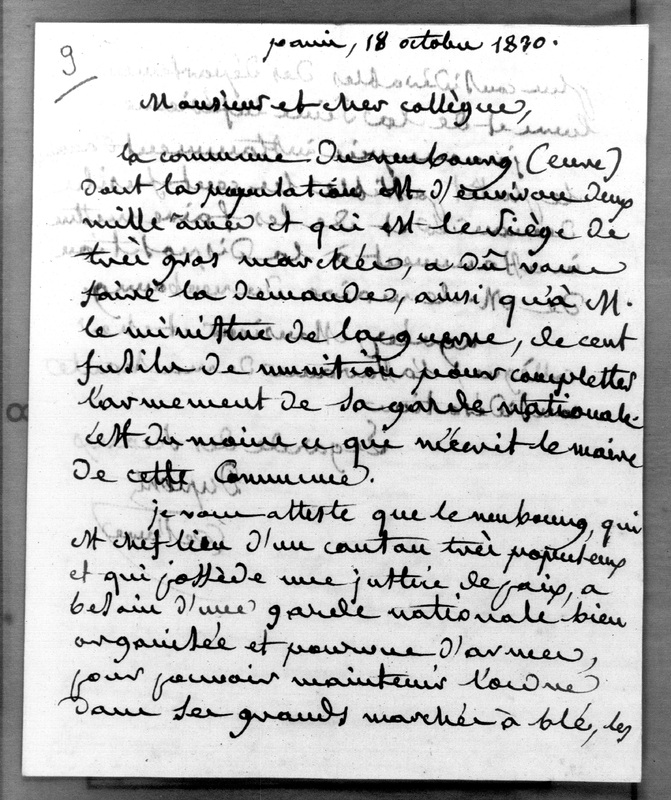 9
paris, 18 octobre 1830.
Monsieur et cher collègue,
la commune du neubourg (eure)
dont la population est d'environ deux
mille âmes et qui est le siège de
très gros marchés, a dû vous
faire la demande, ainsi qu'à M.
le ministre de la guerre, de cent
fusils de munition pour completter
l'armement de sa garde nationale.
c'est du moins ce que m'écrit le maire
de cette Commune.
je vous atteste que le neubourg, qui
est chef lieu d'un canton très populeux
et qui possède une justice de paix, a
besoin d'une garde nationale bien
organisée et pourvue d'armes,
pour pouvoir maintenir l'ordre
dans ses grands marchés à blé, les